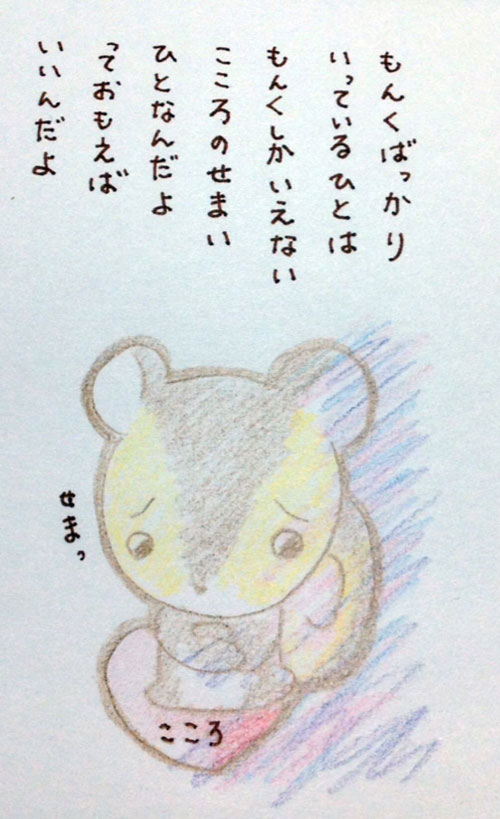 もんくばっかり
いっているひとは
もんくしかいえない
こころのせまい
ひとなんだよ
っておもえば
いいんだよ
せまっ
こころ